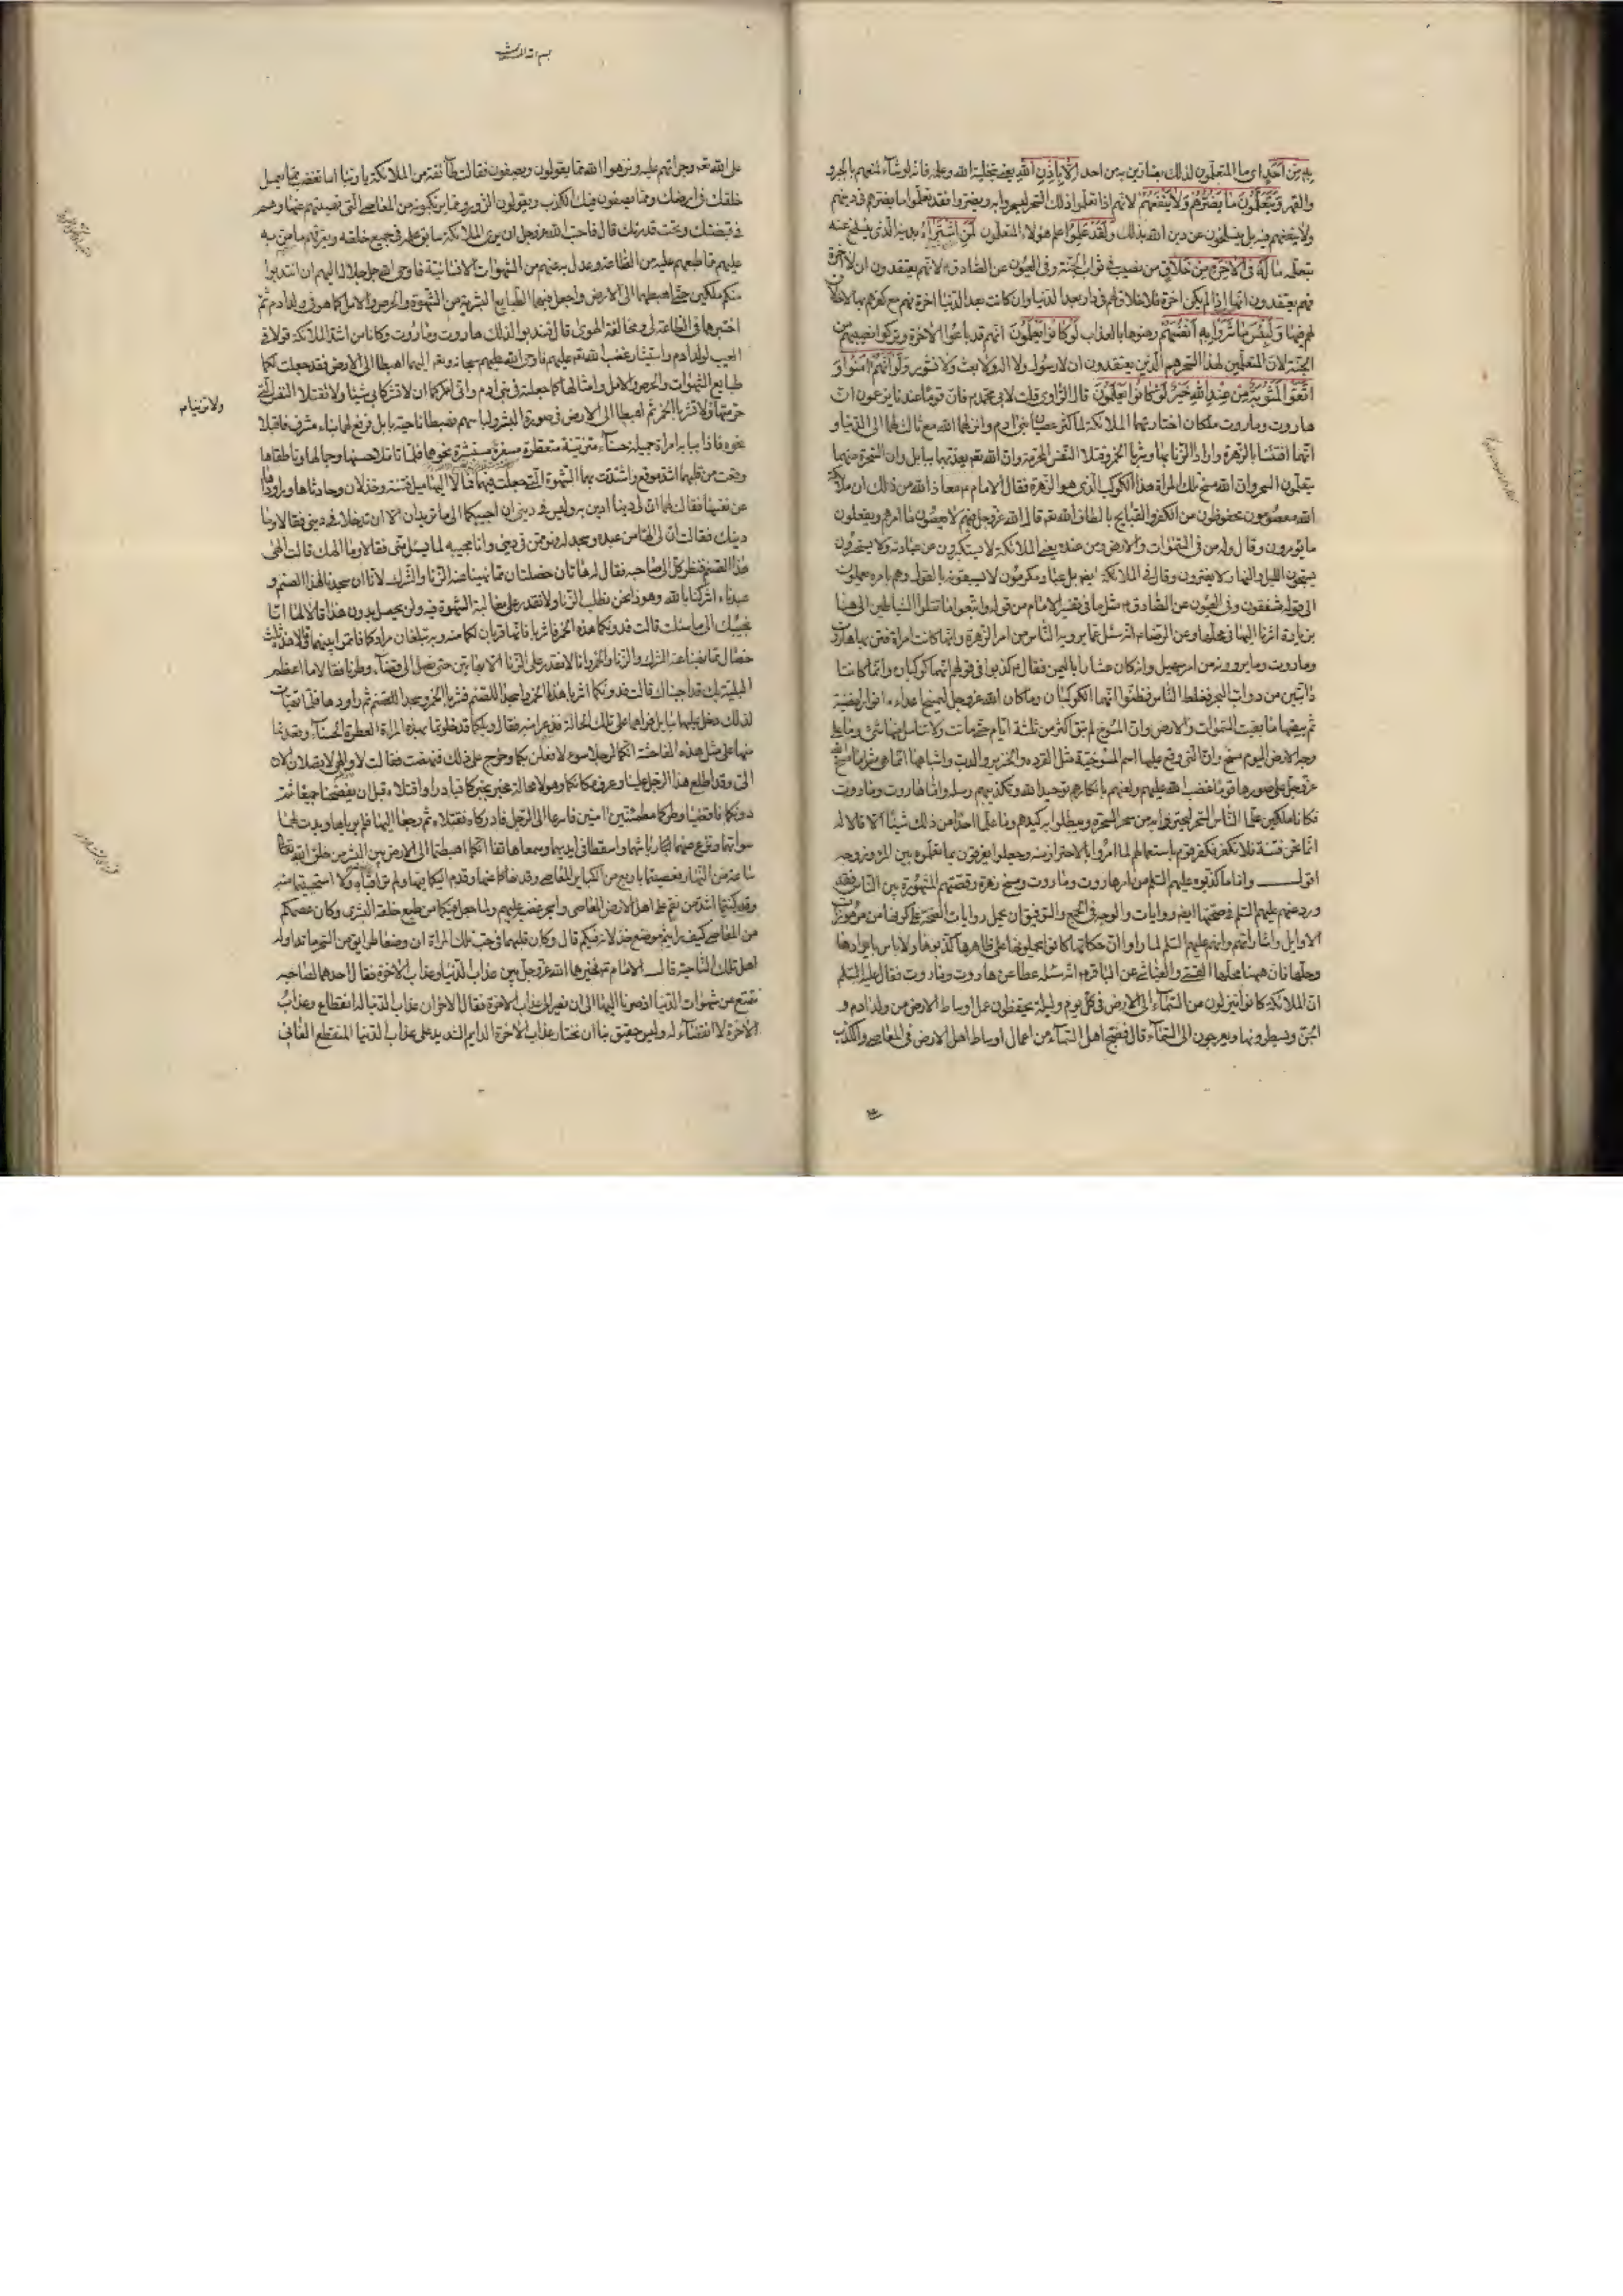 به من احد اي ما المتعلمون لذلك بضارين به من احد الا باذن الله يعني بتخلية الله وعلمه فانه لو شاء لمنعهم بالجبر و
والقهر ويتعلمون ما يضرهم ولا ينفعهم لانهم اذا تعلموا ذلك السحر ليسحروا به ويضروا فقد تعلموا ما يضرهم في دينهم
ولا ينفعهم فيه بل ينسلخون عن دين الله بذلك ولقد علموا علم هؤلاء المتعلمون لمن اشتراه بدينه الذي ينسلخ عنه
بتعلمه ما له في الاخرة من خلاق من نصيب في ثواب الجنة وفي العيون عن الصادق لانهم يعتقدون ان لا اخرة
فهم يعتقدون انها اذا لم يكن اخرة فلا خلاق لهم في دار بعد الدنيا وان كانت بعد الدنيا اخرة فهم مع كفرهم بها لا خلاق
لهم فيها ولبئس ما شروا به انفسهم رهنوها بالعذاب لو كانوا يعلمون انهم قد باعوا الاخرة وتركوا نصيبهم من
الجنة لان المتعلمين لهذا السحر هم الذين يعتقدون ان لا رسول ولا اله ولا بعث ولا نشور ولو انهم امنوا و
اتقوا لمثوبة من عند الله خير لو كانوا يعلمون قال الراوي قلت لابي محمد فان قوما عندنا يزعمون ان
هاروت وماروت ملكان اختارتهما الملائكة لما كثر عصيان بني ادم وانزلهما الله مع ثالث لهما الى الدنيا و
انهما افتتنا بالزهرة وارادا الزنا بها وشربا الخمر وقتلا النفس المحرمة وان الله تعم يعذبهما ببابل وان السحرة منهما
يتعلمون السحر وان الله مسخ تلك المراة هذا الكوكب الذي هو الزهرة فقال الامام معاذ الله من ذلك ان ملائكة
الله معصومون محفوظون من الكفر والقبايح بالطاف الله تعم قال الله عز وجل فيهم لا يعصون ما امرهم ويفعلون
ما يؤمرون وقال وله من في السموات والارض ومن عنده يعني الملائكة لا يستكبرون عن عبادته ولا يستحسرون
يسبحون الليل والنهار لا يفترون وقال في الملائكة ايضم بل عباد مكرمون لا يسبقونه بالقول وهم بامره يعملون
الى قوله مشفقون وفي العيون عن الصادق مثل ما في تفسير الامام من قوله واتبعوا ما تتلوا الشياطين الى هنا
وماروت وما يروونه من امر سهيل وانه كان عشارا باليمن فقال كذبوا في قولهم انهما كوكبان وانما كانتا
دابتين من دواب البحر فغلط الناس فظنوا انهما الكوكبان وما كان الله عز وجل ليمسخ اعداءه انوارا مضيئة
ثم يبقيهما ما بقيت السموات والارض وان المسوخ لم يبق اكثر من ثلثة ايام حتى ماتت ولا تناسل منها شئ وما على
وجه الارض اليوم مسخ وان التي وقع عليها اسم المسوخية مثل القردة والخنزير والدب واشباهها انما هي مثل ما مسخ الله
عز وجل على صورها قوما غضب الله عليهم ولعنهم بانكارهم توحيد الله وتكذيبهم رسله واما هاروت وماروت
فكانا ملكين علما الناس السحر ليحترزوا به من سحر السحرة ويبطلوا به كيدهم وما علما احدا من ذلك شيئا الا قالا له
انما نحن فتنة فلا تكفر فكفر قوم باستعمالهم لما امروا بالاحتراز منه وجعلوا يفرقون بما تعلموه بين المرء وزوجه
اقول واما ما كذبوه عليهم السلم من امر هاروت وماروت ومسخ زهرة وقصتهم المشهورة بين الناس فقد
ورد عنهم عليهم السلم في صحتها ايضم روايات والوجه في الجمع والتوفيق ان يحمل روايات الصحة على كونها من مرموزات
الاوايل واشاراتهم وانهم عليهم السلم لما راوا ان حكاتها كانوا يحملونها على ظاهرها كذبوها ولا باس بايرادها
وحلها فان ههنا محلها القمي والعياشي عن الباقر انه سئله عطا عن هاروت وماروت فقال عليه السلم
ان الملائكة كانوا ينزلون من السماء الى الارض في كل يوم وليلة يحفظون عمل اوساط الارض من ولد ادم و
الجن ويسطرونها ويعرجون الى السماء قال فضج اهل السماء من اعمال اوساط اهل الارض في المعاصي والكذب
على الله تعم وجراتهم عليه ونزهوا الله مما يقولون ويصفون فقالت طائفة من الملائكة يا ربنا اما تغضب مما يعمل
خلقك في ارضك ومما يصفون فيك الكذب ويقولون الزور ومما يرتكبونه من المعاصي التي نهيتهم عنها وهم
في قبضتك وتحت قدرتك قال فاحب الله عز وجل ان يري الملائكة سابق علمه في جميع خلقه ويعرفهم ما من به
عليهم مما طبعهم عليه من الطاعة وعدل به عنهم من الشهوات الانسانية فاوحى الله جل جلاله اليهم ان انتدبوا
منكم ملكين حتى اهبطهما الى الارض واجعل فيهما الطبايع البشرية من الشهوة والحرص والامل كما هو في ولد ادم ثم
اختبرهما في الطاعة لي ومخالفة الهوى قال فندبوا لذلك هاروت وماروت وكانا من اشد الملائكة قولا في
العيب لولد ادم واستيثار غضب الله تعم عليهم فاوحى الله اليهما ان اهبطا الى الارض فقد جعلت لكما
طبايع الشهوات والحرص والامل وامثالها كما جعلته في بني ادم واني امركما ان لا تشركا بي شيئا ولا تقتلا النفس التي
ولا تزنيا
حرمتها ولا تشربا الخمر ثم اهبطا الى الارض في صورة البشر ولباسهم فهبطا ناحية بابل فرفع لهما بناء مشرف فاقبلا
نحوه فاذا ببابه امراة جميلة حسناء متزينة متعطرة مسفرة مستبشرة نحوهما فلما تاملا حسنها وجمالها وناطقاها
عن نفسها فقالت لهما ان لي دينا ادين به وليس في ديني ان اجيبكما الى ما تريدان الا ان تدخلا في ديني فقالا وما
دينك فقالت ان لي الها من عبده وسجد له فهو ممن في ديني وانا مجيبه لما يسئل مني فقالا وما الهك قالت الهي
هذا الصنم فنظر كل الى صاحبه فقال له هاتان خصلتان مما نهينا عنه الزنا والشرك لانا ان سجدنا لهذا الصنم و
عبدناه اشركنا بالله وهوذا نحن نطلب الزنا ولا نقدر على مغالبة الشهوة فيه ولن يحصل بدون هذا قالا لها انا
نجيبك الى ما سئلت قالت فدونكما هذه الخمر فاشربا فانها قربان لكما منه وبه تبلغان مرادكما فاتمرا بينهما وقالا هذه ثلث
خصال مما نهينا عنه الشرك والزنا والخمر وانا لا نقدر على الزنا الا بهاتين حتى نصل الى قضاء وطرنا فقالا ما اعظم
البلية بك قد اجبناك قالت فدونكما اشربا هذا الخمر واسجدا للصنم فشربا الخمر وسجدا للصنم ثم راوداها فلما تهيات
لذلك دخل عليهما سايل فراهما على تلك الحالة فذعرا منه فقال ويلكما قد خلوتما بهذه المراة العطرة الحسناء وقعدتما
منها على مثل هذه الفاحشة انكما لرجلا سوء لافعلن بكما وخرج على ذلك فنهضت فقالت لا والهي لا تصلان الان
الي وقد اطلع هذا الرجل علينا وعرف مكاننا وهو لا محالة مخبر بخبركما فبادرا واقتلاه قبل ان يفضحنا جميعا ثم
دونكما فاقضيا وطركما مطمئنين امنين فاسرعا الى الرجل فادركاه فقتلاه ثم رجعا اليها فلم يرياها وبدت لهما
ساعة من النهار فعصيتما باربع من الكباير المعاصي وقد نهاكما عنها وقدم اليكما فيها ولم تراقباه ولا استحييتما منه
وقد كنتما اشد من نقم على اهل الارض المعاصي
اهل تلك الناحية قال الامام فخيرهما الله عز وجل بين عذاب الدنيا وعذاب الاخرة فقال احدهما لصاحبه
نتمتع من شهوات الدنيا اذ صرنا اليها الى ان نصير الى عذاب الاخرة فقال الاخر ان عذاب الدنيا له انقطاع وعذاب
الاخرة لا انقضاء له وليس حقيق بنا ان نختار عذاب الاخرة الدايم الشديد على عذاب الدنيا المنقطع الفاني